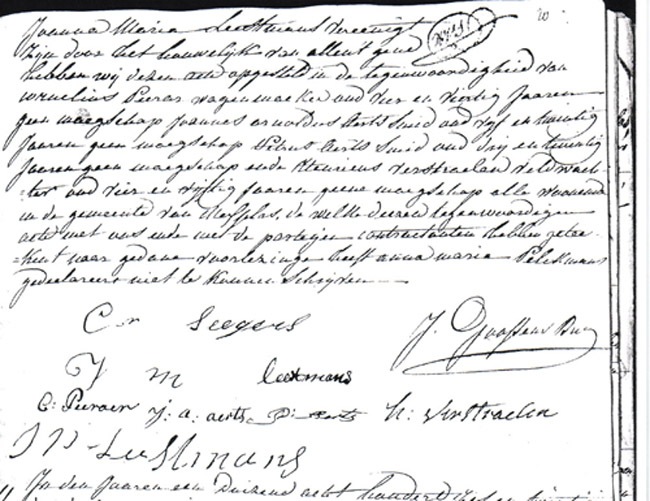 Joanna Maria Leestmans vereenigt
zijn door het houwelijk van allent gene
hebben wij dezen acte opgesteld in de tegenwoordigheid van
Cornelius Pieraer wagenmaeker oud vier en vertig Jaaren
geen maegschap Joannes arnoldus Aerts Smid oud vyf en twintig
Jaaren geen maegschap Petrus Aerts Smid oud dry en twintig
Jaaren geen maegschap ende Henricus Verstraelen veldwach-
-ter oud vier en vyftig Jaaren geene maegschap alle woonende
in de gemeente van de welke deezen tegenwoordigen
acte met ons ende met de partijen contractanten hebben getee-
-kent naer gedane voorlezinge heeft anna maria Pelckmans
gedeclareert niet te kunnen Schryven
C Seegers
J. Goossens
J m leestmans
C: Pieraer J: a: aerts P: aerts h: verstraelen
Leestmans
In den Jaaren een Duizend acht honderd